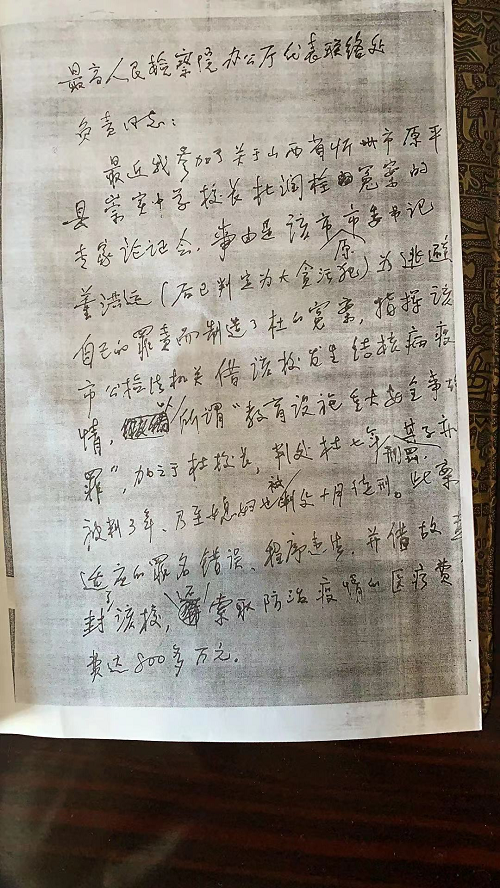 最高人民检察院办公厅代表联络处
负责同志：
最近我参加了关于山西省忻州市原平
县崇实中学校长杜润栓的冤案的
专家论证会。事由是该市原市委书记
董洪运（后已判定为大贪污犯）为逃避
自己的罪责而制造了杜的冤案，指挥该
市公检法机关借该校发生结核病疫
情，以所谓“教育设施重大安全事故
罪”，加之于杜校长，判处杜七年刑罚，其子亦
被判3年、乃至媳妇也被判处十月徒刑。此案
适应的罪名错误、程序违法，并借故查
封了该校，还索取防治疫情的医疗费
费达800多万元。